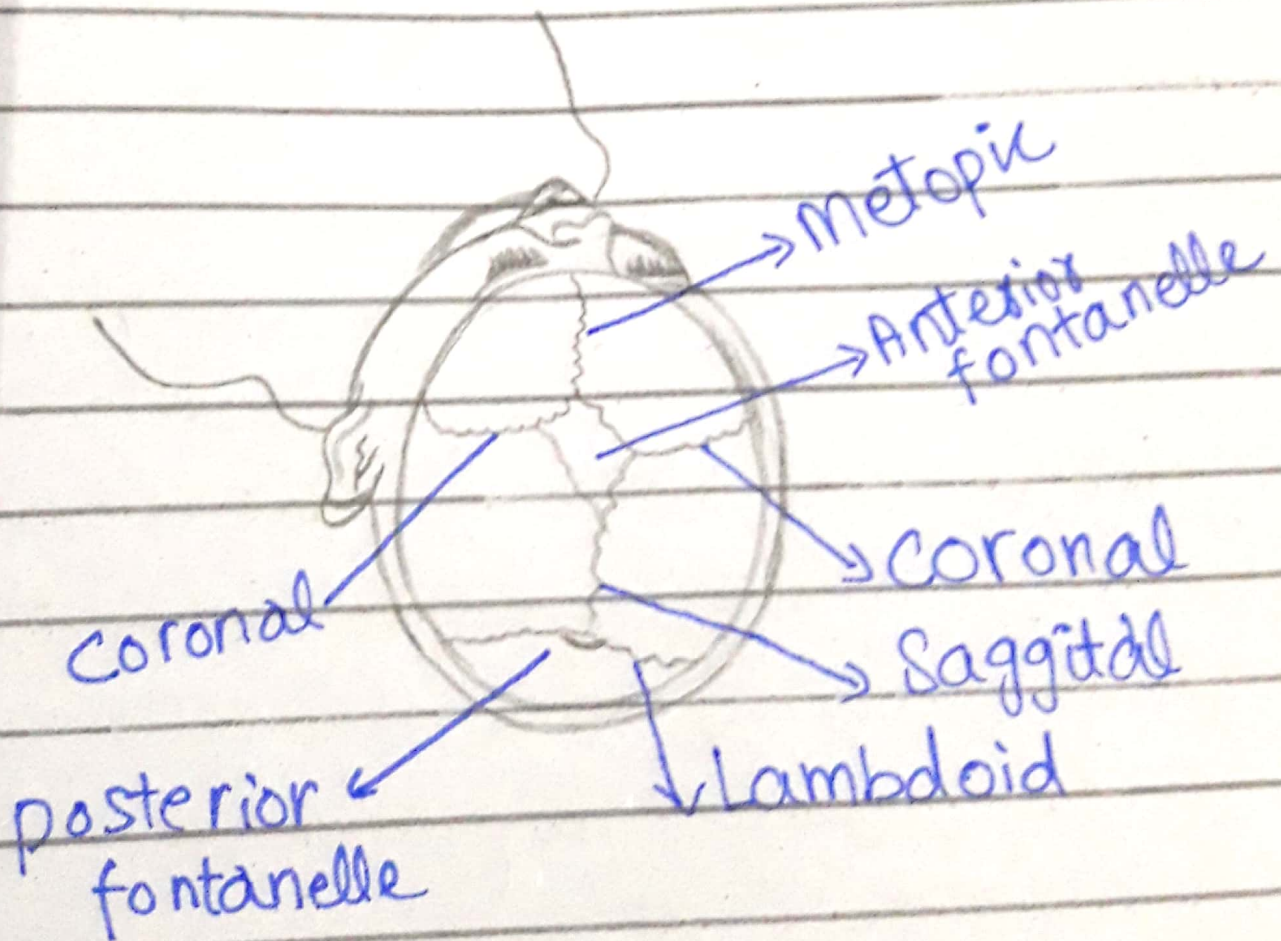 Metopic
Anterior
fontanelle
Coronal
Coronal
Saggital
Lambdoid
Posterior
fontanelle